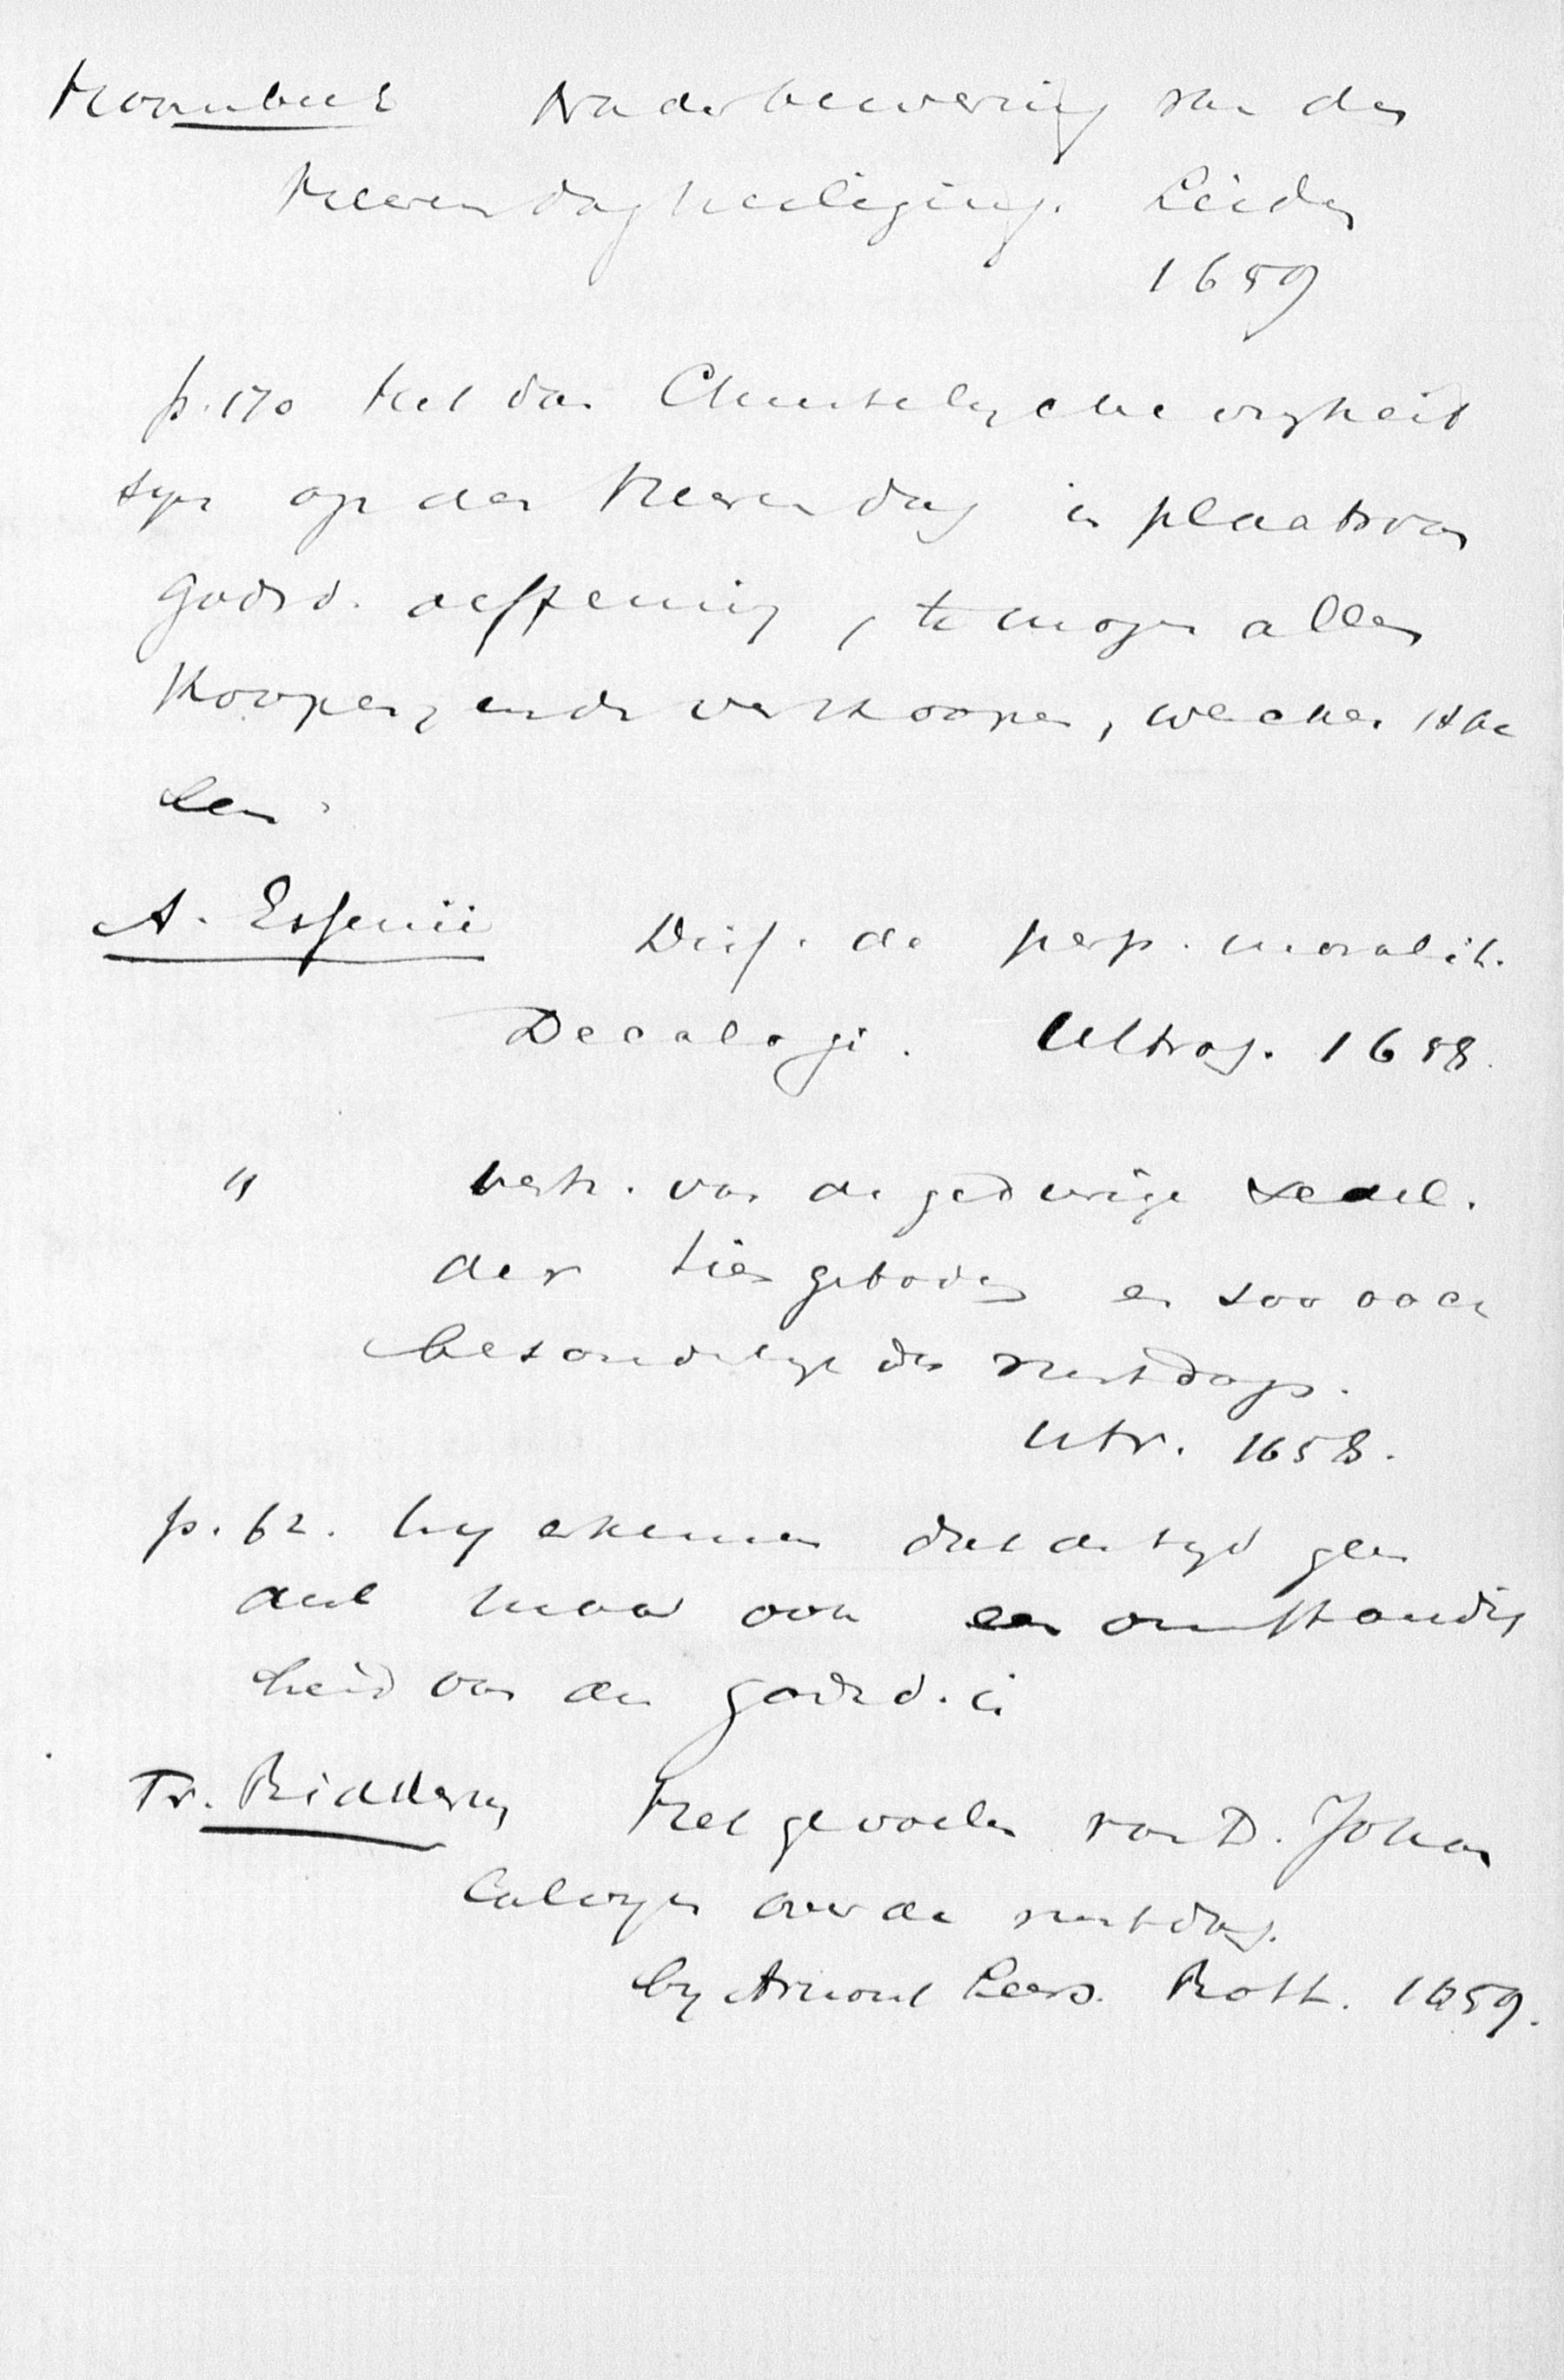 Hoornbeek Nader beweering van des
Heeren dag heiliging. Leiden
1659
p. 170 Het dan Christelycke vryheid
syn op den Heeren dag in plaats van
Godsd. oeffening, te mogen alles
koopen, ende verkoopen, wercken, spe
len.
A. Essenii Diss. de perp. moralit.
Decalogi. Ultraj. 1658.
" Verh. van de gedurige zedel.
der tien geboden en soo oock
besonderlyk des rustdags.
Utr. 1658.
p. 62. Wy erkennen dat de tyd geen
deel maar ook een omstandig
heid van den godsd. is
Fr. Ridderus Het gevoelen van D. Johan
Calvyn over de rustdag.
by Arnout Leers. Rott. 1659.